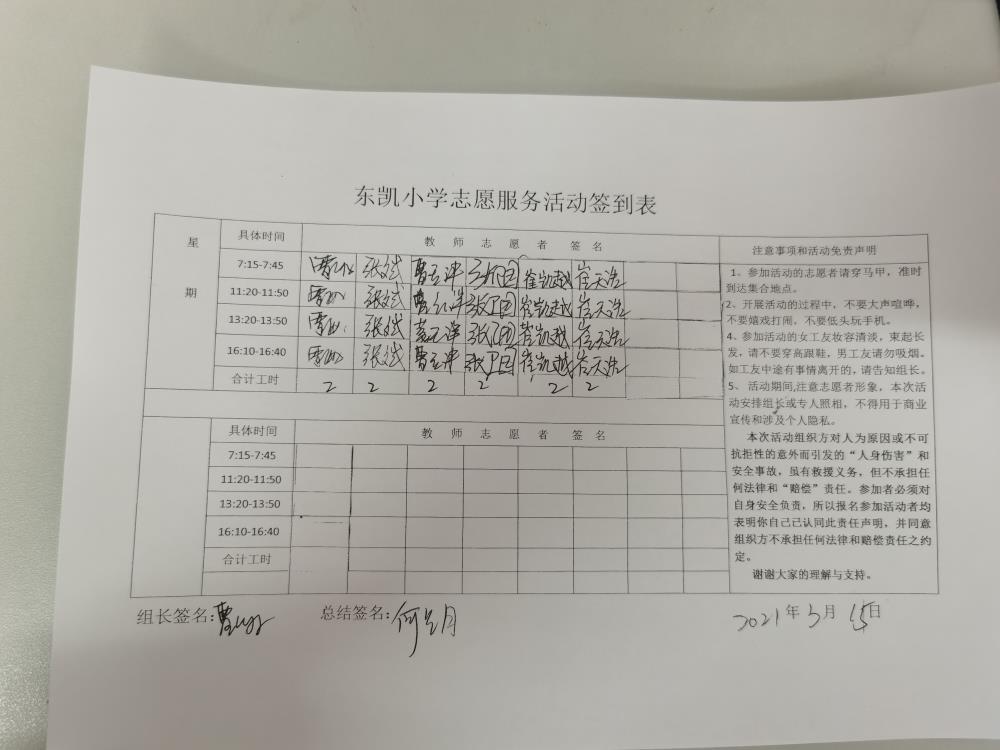 东凯小学志愿服务活动签到表
星期
具体时间 教师志愿者 签名
7:15-7:45 张斌 崔凯越 崔天浩
11:20-11:50 张斌 张卫国 崔凯越 崔天浩
13:20-13:50 张斌 张卫国 崔凯越 崔天浩
16:10-16:40 张斌 张卫国 崔凯越 崔天浩
合计工时 2 2 2 2 2 2
具体时间 教师志愿者 签名
7:15-7:45
11:20-11:50
13:20-13:50
16:10-16:40
合计工时
注意事项和活动免责声明
1、参加活动的志愿者请穿马甲，准时
到达集合地点。
2、开展活动的过程中，不要大声喧哗，
不要嬉戏打闹，不要低头玩手机。
4、参加活动的女工友妆容清淡，束起长
发，请不要穿高跟鞋，男工友请勿吸烟。
如工友中途有事情离开的，请告知组长。
5、活动期间,注意志愿者形象，本次活
动安排组长或专人照相，不得用于商业
宣传和涉及个人隐私。
本次活动组织方对人为原因或不可
抗拒性的意外而引发的“人身伤害”和
安全事故，虽有救援义务，但不承担任
何法律和“赔偿”责任。参加者必须对
自身安全负责，所以报名参加活动者均
表明你自己已认同此责任声明，并同意
组织方不承担任何法律和赔偿责任之约
定。
谢谢大家的理解与支持。
组长签名: 总结签名:
2021年3月15日